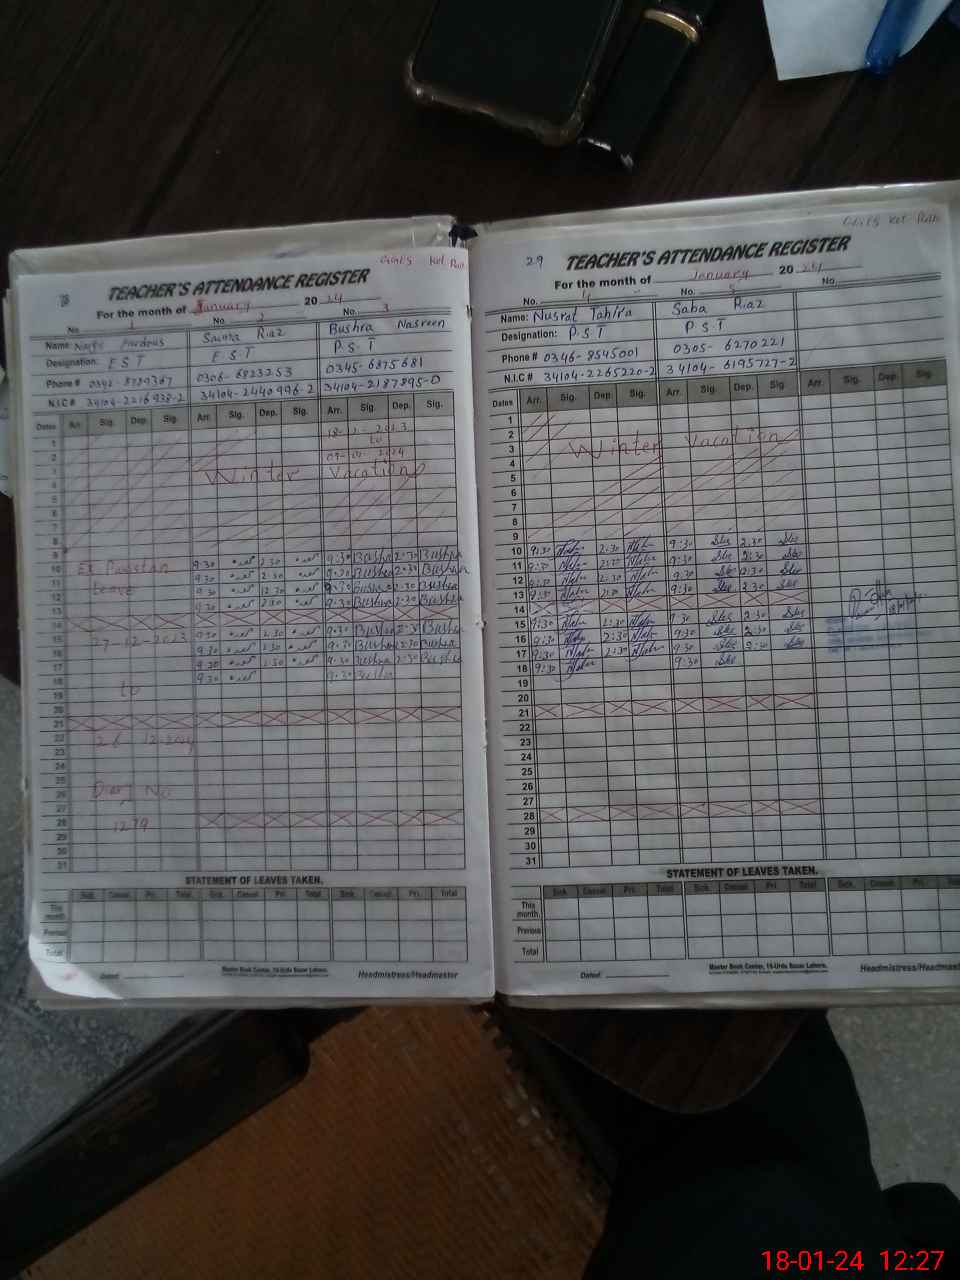 Girls Kot Ran
TEACHER'S ATTENDANCE REGISTER
For the month of January 2024
No. 1 No. 2 No. 3
Name: Firdous Saima Riaz Bushra Nasreen
Designation: E S T E S T P.S.T
Phone # 0306-6823253 0345-6875681
N.I.C # 34104-2216938-2 34104-2440996-2 34104-2187895-0
Dates Arr. Sig. Dep. Sig. Arr. Sig. Dep. Sig. Arr. Sig. Dep. Sig.
18-12-2023
to
09-01-2024
Winter Vacation
1
2
3
4
5
6
7
8
9
10 Ex Pakistan 9:30 2:30 9:30 Bushra 2:30 Bushra
11 Leave 9:30 2:30 9:30 Bushra 2:30 Bushra
12 9:30 12:30 9:30 Bushra 2:30 Bushra
13 9:30 2:30 9:30 Bushra 2:30 Bushra
14
15 27-12-2023 9:30 2:30 9:30 Bushra 2:30 Bushra
16 9:30 2:30 9:30 Bushra 2:30 Bushra
17 9:30 2:30 9:30 Bushra 2:30 Bushra
18 9:30 9:30 Bushra
19 to
20
21
22 26-12-2024
23
24
25
26 Diary No
27
28 1279
29
30
31
STATEMENT OF LEAVES TAKEN.
Sick. Casual. Pri. Total. Sick. Casual. Pri. Total. Sick. Casual. Pri. Total
This month.
Previous
Total
Dated:
Master Book Center, 19-Urdu Bazar Lahore.
Headmistress/Headmaster
Girls Kot Ran
29
TEACHER'S ATTENDANCE REGISTER
For the month of January 2024
No. 4 No. 5 No.
Name: Nusrat Tahira Saba Riaz
Designation: P.S.T P.S.T
Phone # 0346-8545001 0305-6270221
N.I.C # 34104-2265220-2 34104-6195727-2
Dates Arr. Sig. Dep. Sig. Arr. Sig. Dep. Sig. Arr. Sig. Dep. Sig.
1
2
3 Winter Vacation
4
5
6
7
8
9
10 9:30 2:30 9:30 2:30
11 9:30 2:30 9:30 2:30
12 9:30 2:30 9:30 2:30
13 9:30 2:30 9:30 2:30
14
15 9:30 2:30 9:30 2:30
16 9:30 2:30 9:30 2:30
17 9:30 2:30 9:30 2:30
18 9:30 9:30
19
20
21
22
23
24
25
26
27
28
29
30
31
STATEMENT OF LEAVES TAKEN.
Sick. Casual. Pri. Total. Sick. Casual. Pri. Total. Sick. Casual. Pri.
This month.
Previous
Total
Dated:
Master Book Center, 19-Urdu Bazar Lahore.
Headmistress/Headmast
18-01-24 12:27